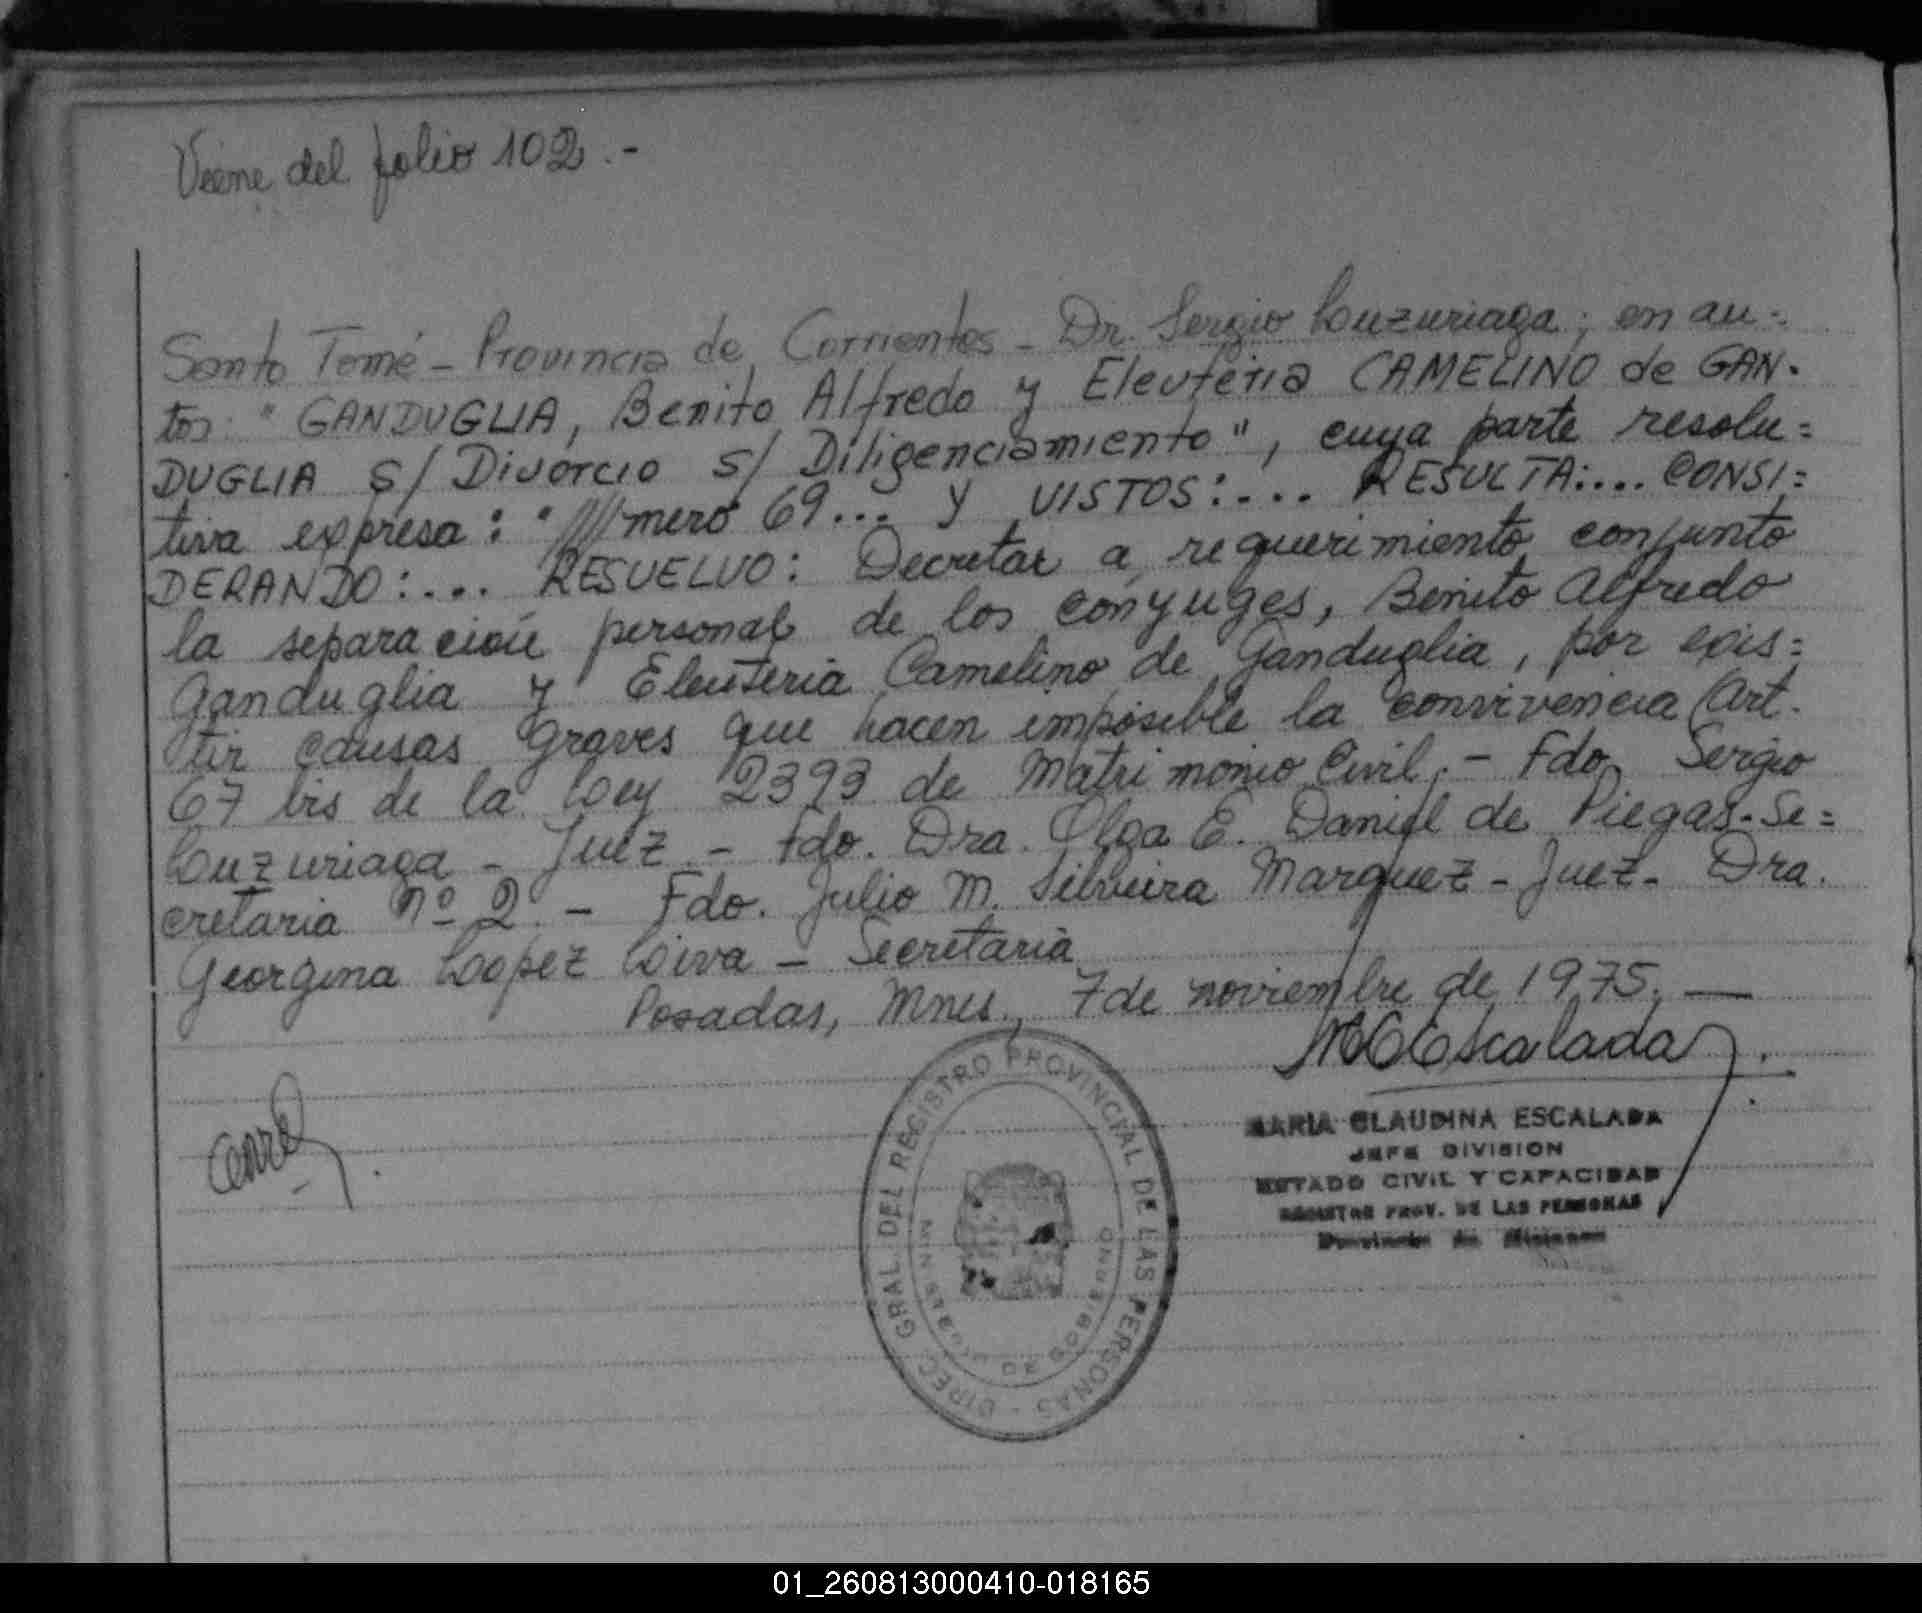 Viene del folio 102.-
Santo Tomé - Provincia de Corrientes - Dr. Sergio Louzuriaga; en au-
tos: "GANDUGLIA, Benito Alfredo y Eleuteria CAMELINO de GAN-
DUGLIA S/ Divorcio S/ Diligenciamiento", cuya parte resolu=
tiva expresa: "////mero 69... y VISTOS:.... RESULTA:.... CONSI=
DERANDO:.... RESUELVO: Decretar a requerimiento conjunto
la separación personal de los conyuges, Benito Alfredo
Ganduglia y Eleuteria Camelino de Ganduglia, por exis=
tir causas graves que hacen imposible la convivencia (Art.
67 bis de la Ley 2393 de Matrimonio Civil.- Fdo. Sergio
Louzuriaga - Juez - Fdo. Dra. Olga E. Daniel de Piegas-Se=
cretaria Nº 2.- Fdo. Julio M. Silveira Marquez - Juez - Dra.
Georgina Lopez Leiva - Secretaria
Posadas, Mnes., 7 de noviembre de 1975.
MCEscalada
MARIA CLAUDINA ESCALADA
JEFE DIVISION
ESTADO CIVIL Y CAPACIDAD
REGISTRO PROV. DE LAS PERSONAS
Provincia de Misiones
DIREC. GRAL. DEL REGISTRO PROVINCIAL DE LAS PERSONAS
MINISTERIO DE GOBIERNO
01_260813000410-018165